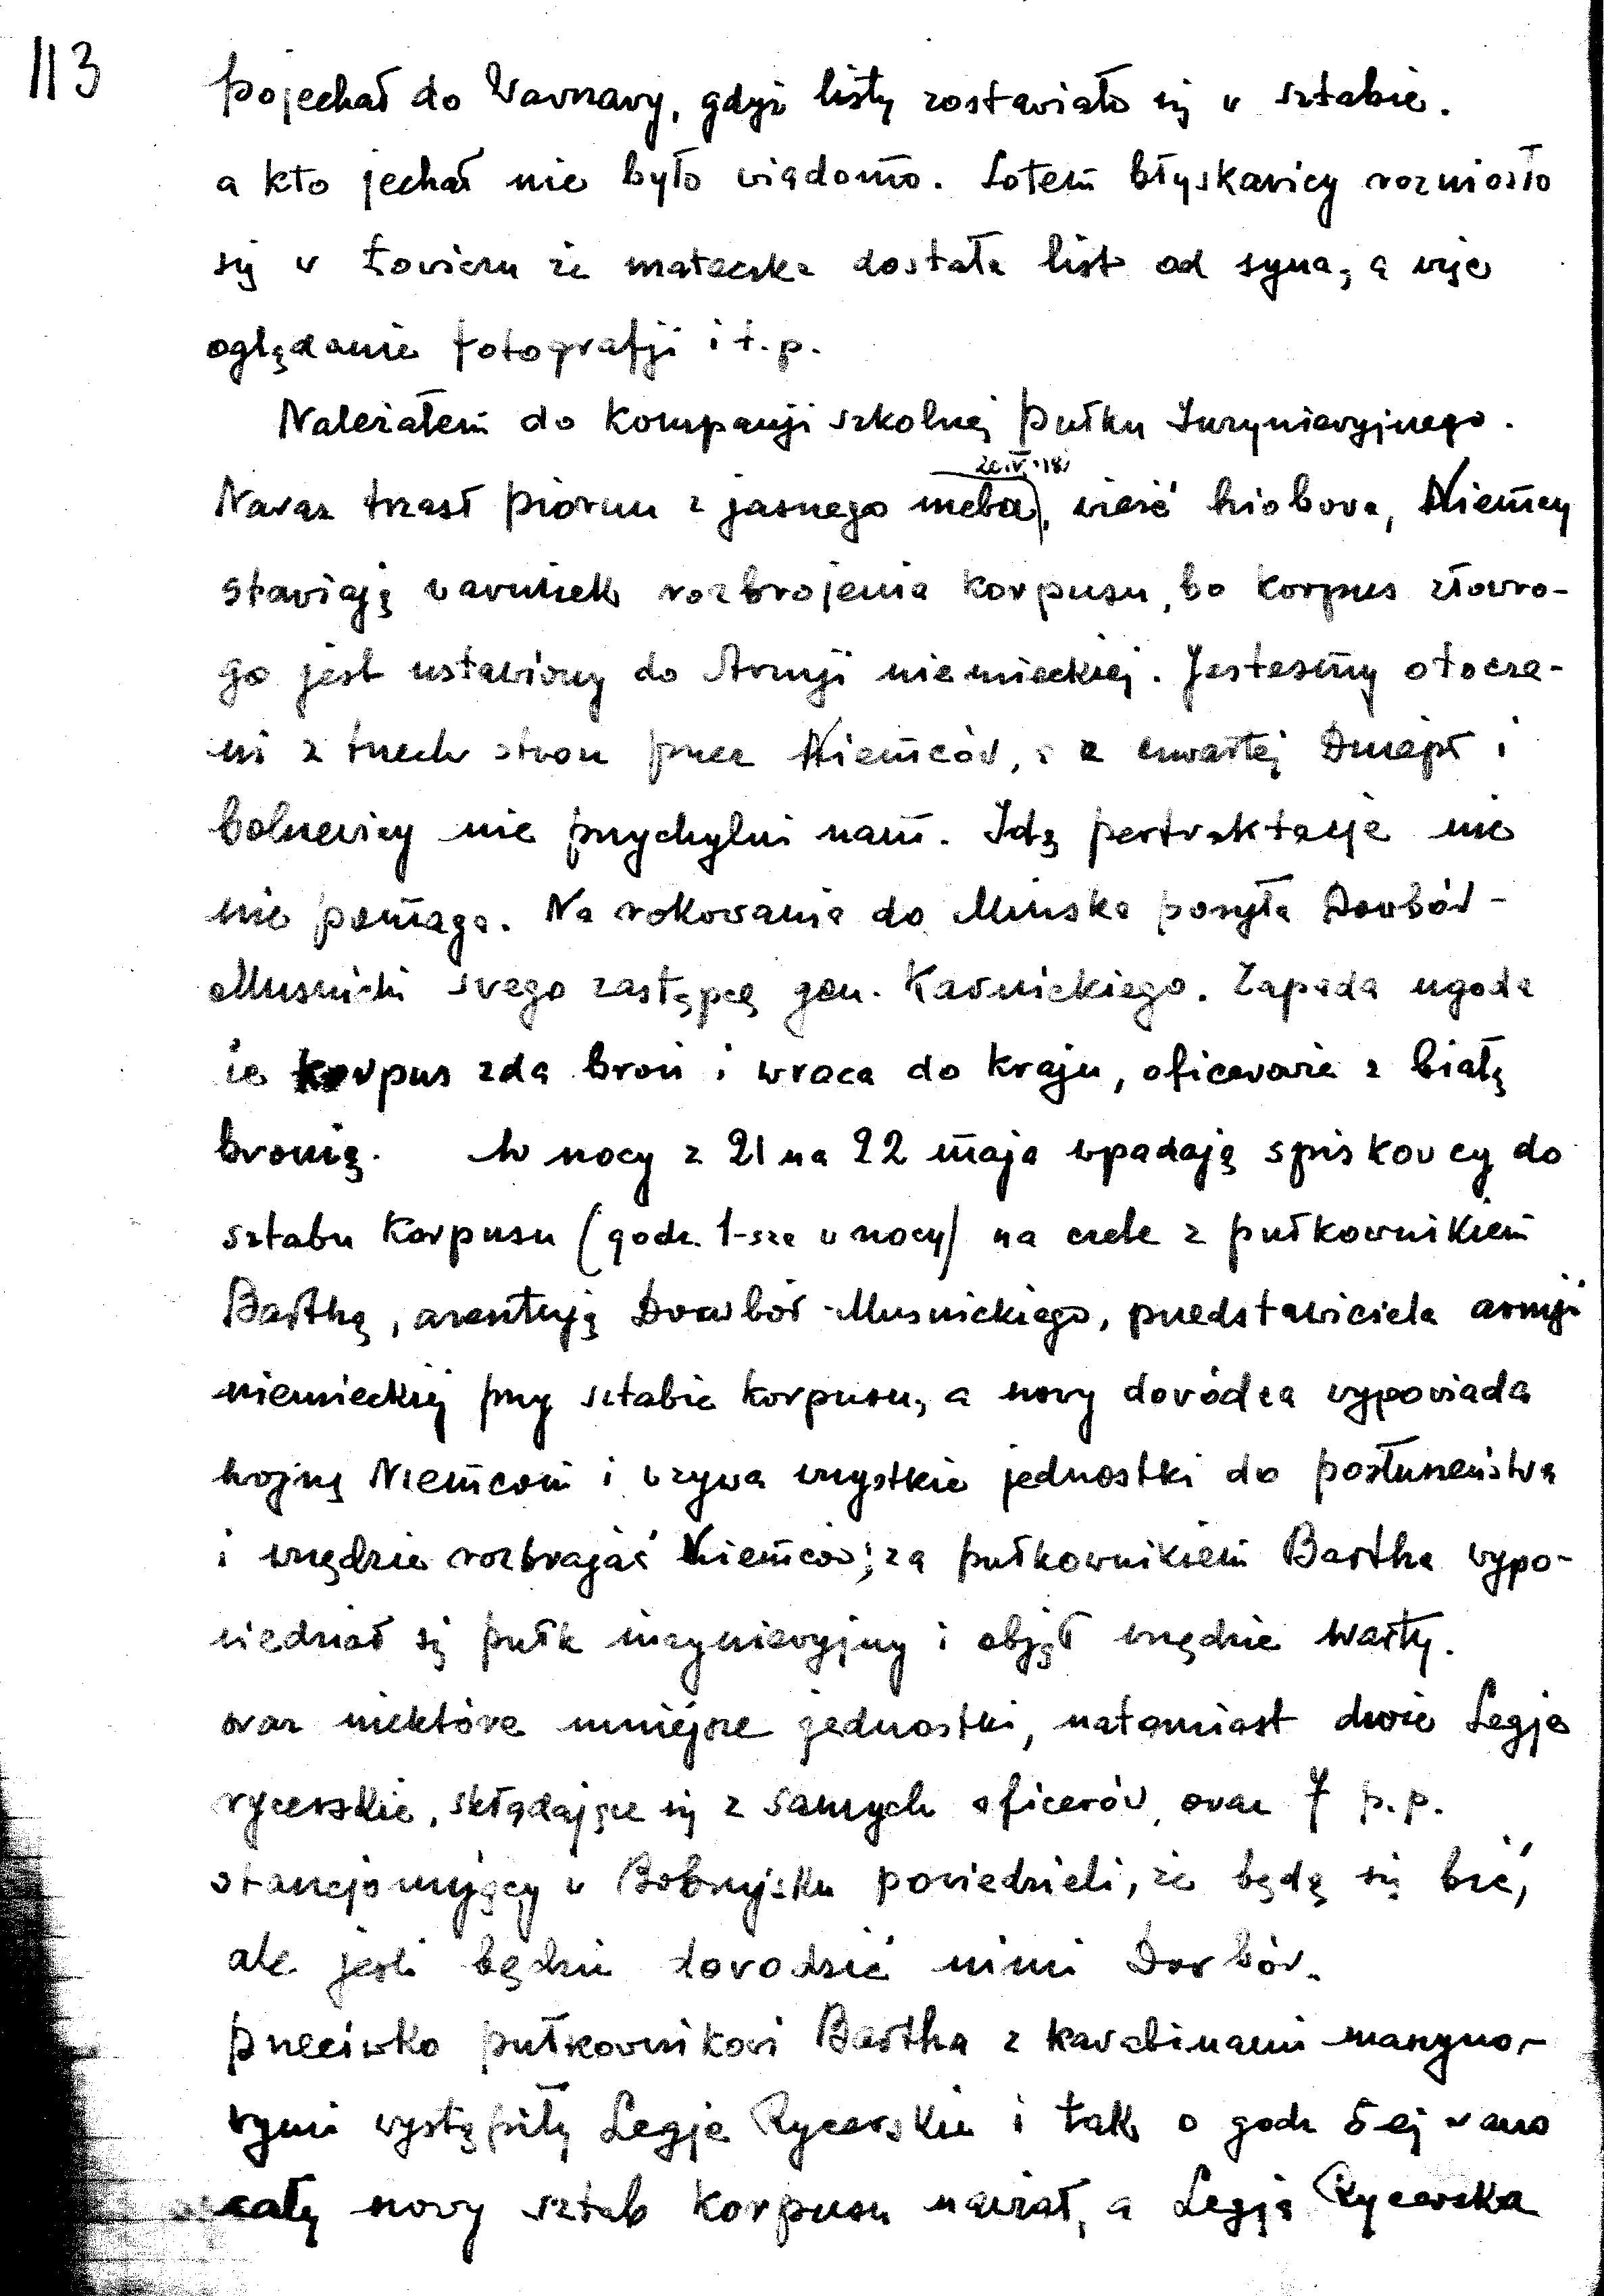 113
pojechał do Warszawy, gdyż listy zostawiało się w sztabie.
a kto jechał nie było wiadomo. Lotem błyskawicy rozniosło
się w Łowiczu że mateczka dostała list od syna, a więc
oglądanie fotografji i t. p.
Należałem do kompanji szkolnej pułku Inżynieryjnego.
20.V.18
Naraz trzasł piorun z jasnego nieba, wieść hiobowa, Niemcy
stawiają warunek rozbrojenia korpusu, bo korpus złowro-
go jest ustawiony do Armji niemieckiej. Jesteśmy otocze-
ni z trzech stron przez Niemców, a z czwartej Dniepr i
bolszewicy nie przychylni nam. Idą pertraktacje nic
nie pomaga. Na rokowania do Mińska posyła Dowbór-
Muśnicki swego zastępcę gen. Kaśnickiego. Zapada ugoda
że korpus zda broń i wraca do kraju, oficerowie z białą
bronią. W nocy z 21 na 22 maja wpadają spiskowcy do
sztabu Korpusu (godz. 1-sza w nocy) na czele z pułkownikiem
Barthą, aresztują Dowbór-Muśnickiego, przedstawiciela armji
niemieckiej przy sztabie korpusu, a nowy dowódca wypowiada
wojnę Niemcom i wzywa wszystkie jednostki do posłuszeństwa
i wszędzie rozbrajać Niemców; za pułkownikiem Bartha wypo-
wiedział się pułk inżynieryjny i objął wszędzie warty.
oraz niektóre mniejsze jednostki, natomiast dwie Legje
rycerskie, składające się z samych oficerów, oraz 7 p.p.
stancjonujący w Bobrujsku powiedzieli, że będą się bić,
ale jeśli będzie dowodzić nimi Dowbór.
przeciwko pułkownikowi Bartha z karabinami maszyno-
wymi wystąpiły Legje Rycerskie i tak o godz 5ej rano
cały nowy sztab korpusu nawiał, a Legja Rycerska